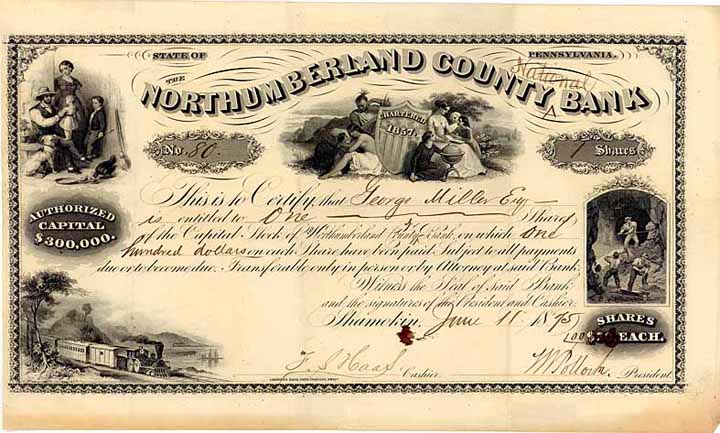 STATE OF PENNSYLVANIA.
THE
NORTHUMBERLAND COUNTY BANK
National
^
CHARTERED
1857.
No. 80
1 Shares
This is to Certify, that George Miller Esq
is entitled to One Shares
of the Capital Stock of Northumberland County Bank, on which One
hundred dollars on each Share have been paid. Subject to all payments
due or to become due. Transferable only in person or by Attorney at said Bank.
Witness the Seal of said Bank
and the signatures of the President and Cashier.
Shamokin, June 11 1875
AUTHORIZED
CAPITAL
$300,000.
SHARES
100 $ EACH.
F. S. Haas Cashier.
W Pollock President.